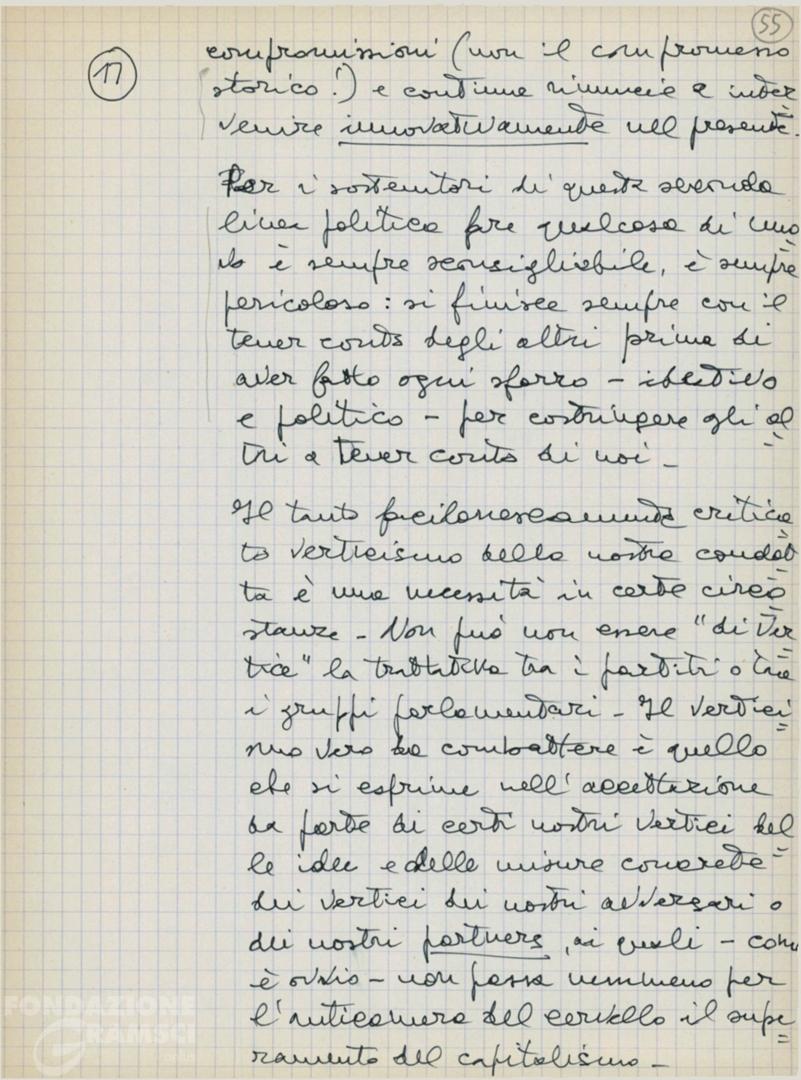 55
17
compromissioni (non il compromesso
storico!) e continue rinuncie a inter=
venire innovativamente nel presente.
Per i sostenitori di questa seconda
linea politica fare qualcosa di nuo=
vo è sempre sconsigliabile, è sempre
pericoloso: si finisce sempre con il
tener conto degli altri prima di
aver fatto ogni sforzo – ideativo
e politico – per costringere gli al=
tri a tener conto di noi –
Il tanto facilonescamente critica=
to verticismo della nostra condot=
ta è una necessità in certe circo=
stanze – Non può non essere "di ver=
tice" la trattativa tra i partiti o tra
i gruppi parlamentari – Il vertici=
smo vero da combattere è quello
che si esprime nell'accettazione
da parte di certi nostri vertici del=
le idee e delle misure concrete
dei vertici dei nostri avversari o
dei nostri partners, ai quali – come
è ovvio – non passa nemmeno per
l'anticamera del cervello il supe=
ramento del capitalismo –
FONDAZIONE
GRAMSCI